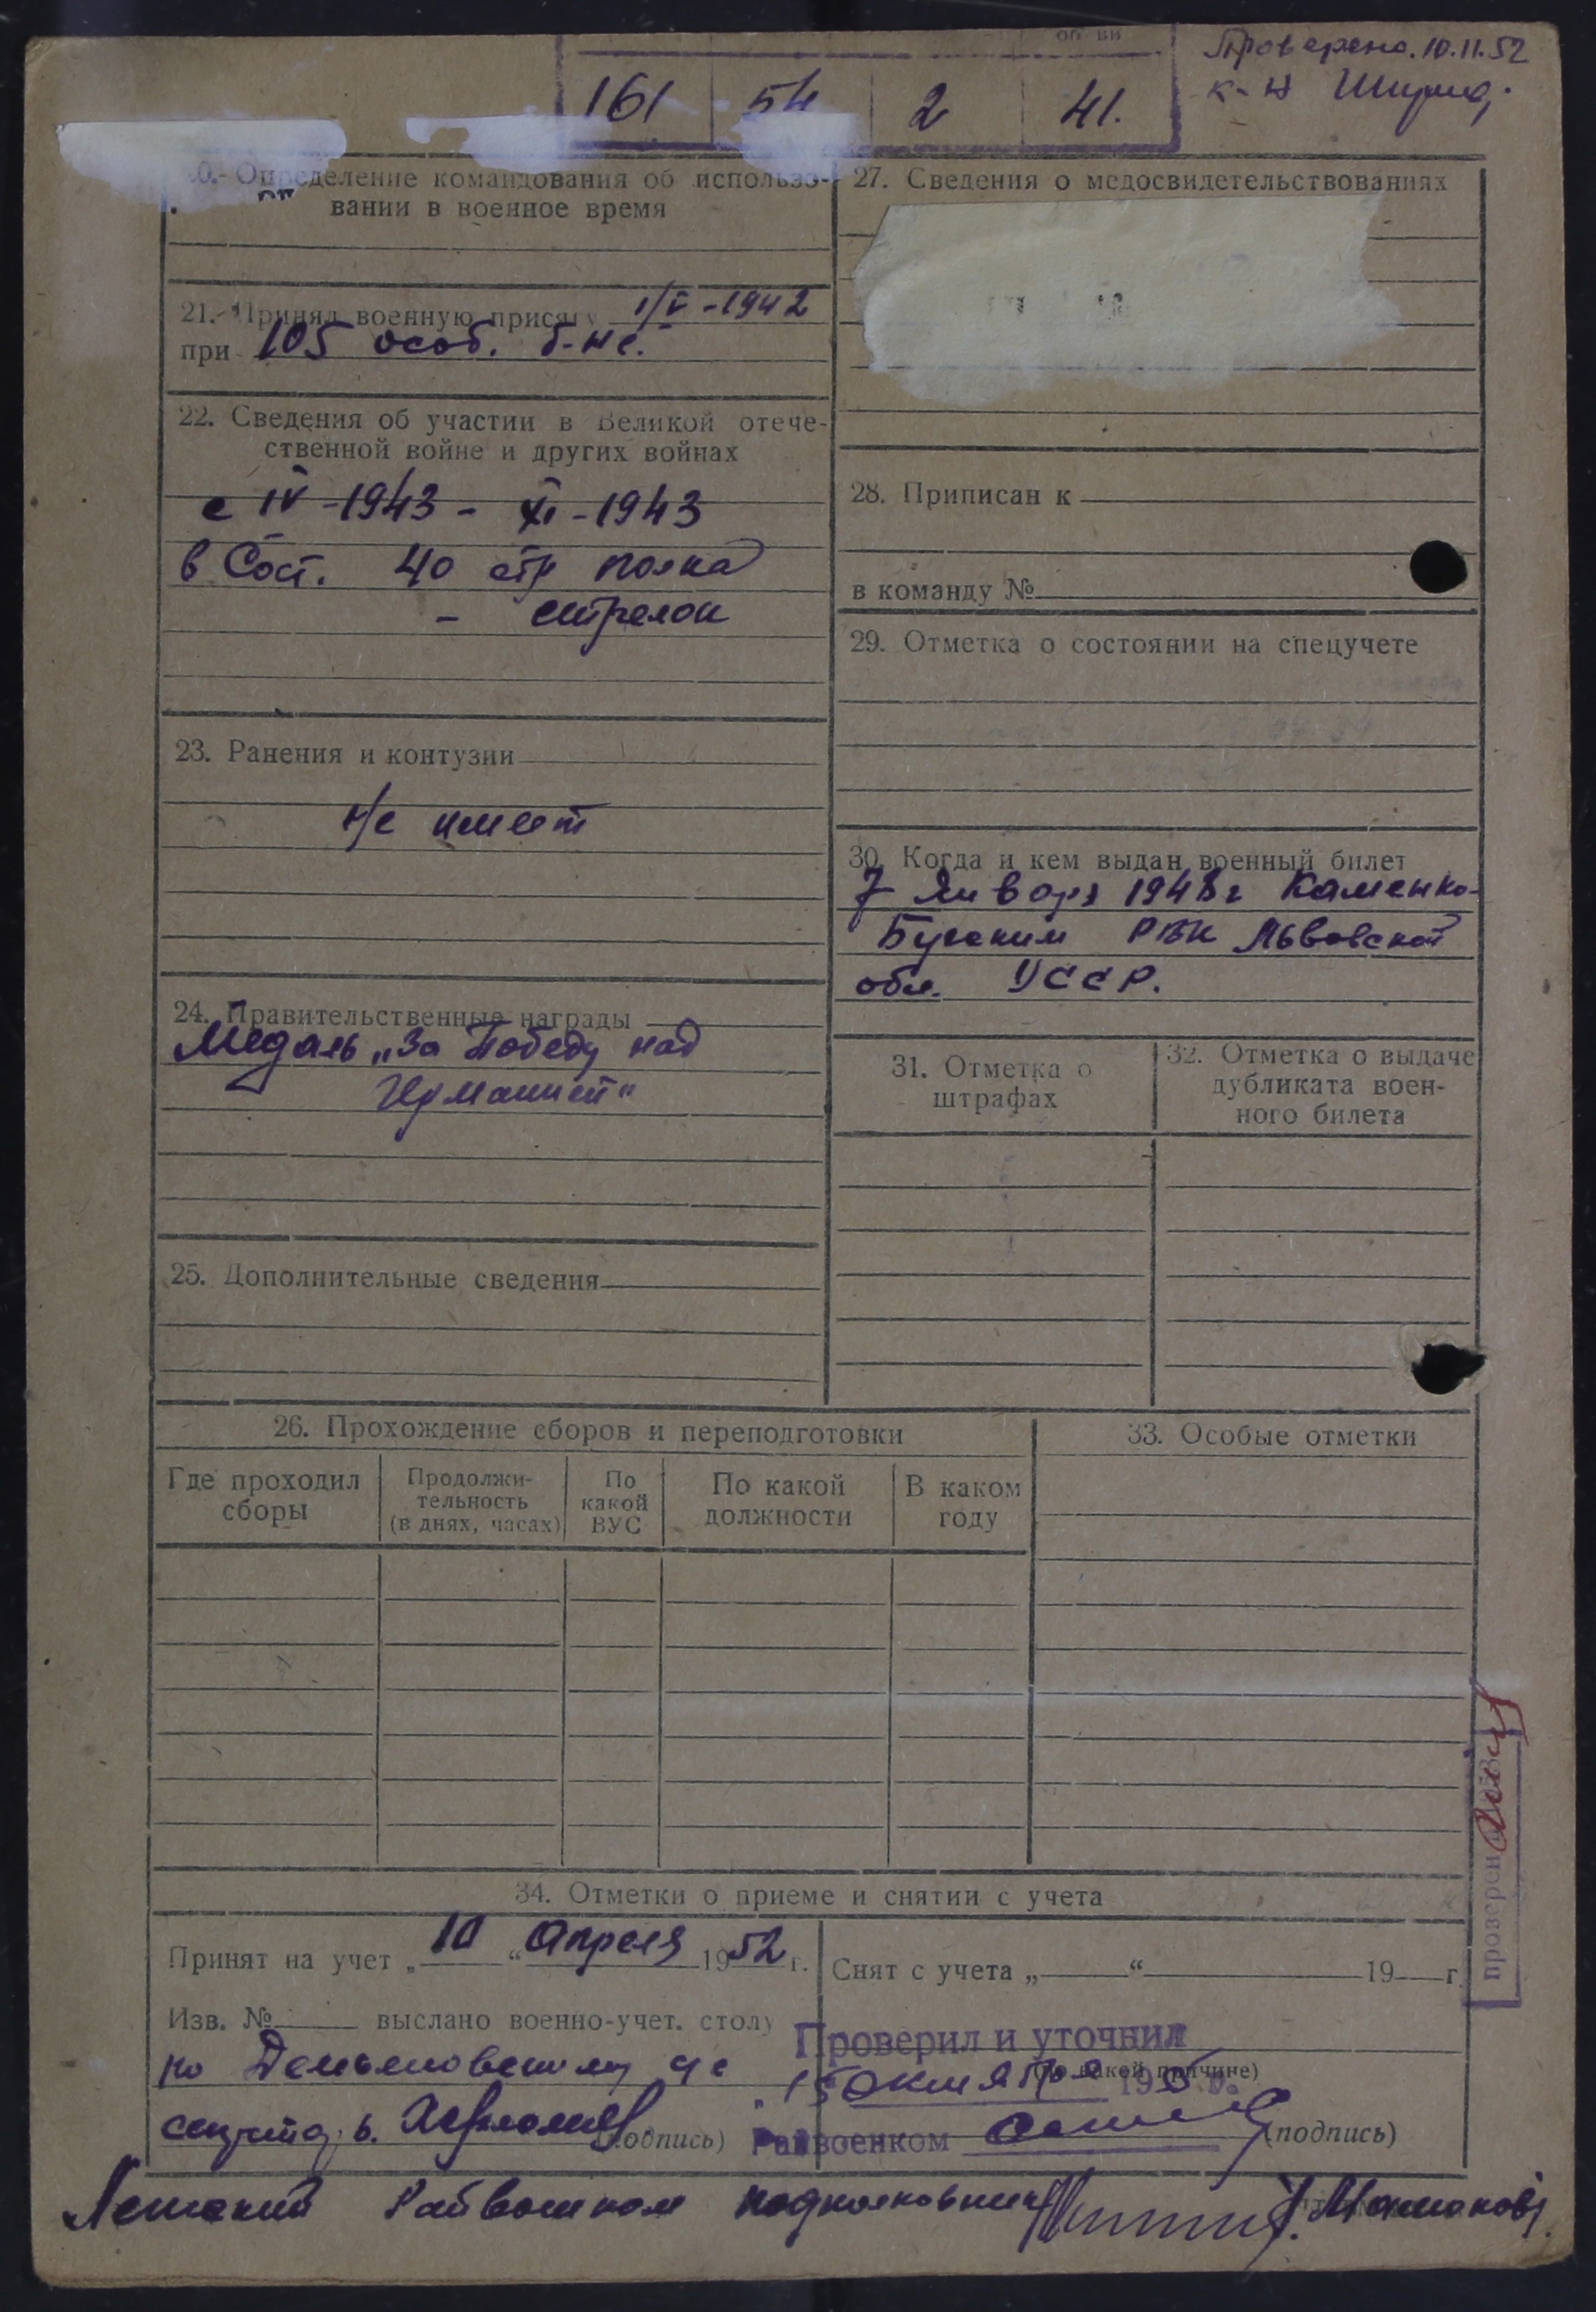 об ви
161 54 2 41.
Проверено. 10.11.52
к-н
0. Определение командования об использо-
вании в военное время
21. Принял военную присягу 1/V-1942
при 105 особ. б-не.
22. Сведения об участии в Великой отече-
ственной войне и других войнах
с IV-1943 - XI-1943
в Сост. 40 стр полка
- стрелок
23. Ранения и контузии
Не имеет
24. Правительственные награды
Медаль „За Победу над
Германией"
25. Дополнительные сведения
27. Сведения о медосвидетельствованиях
28. Приписан к
в команду №
29. Отметка о состоянии на спецучете
30. Когда и кем выдан военный билет
7 Января 1948 г Каменко-
Бугским РВК Львовской
обл. УССР.
31. Отметка о
штрафах
32. Отметка о выдаче
дубликата воен-
ного билета
26. Прохождение сборов и переподготовки
Где проходил
сборы
Продолжи-
тельность
(в днях, часах)
По
какой
ВУС
По какой
должности
В каком
году
33. Особые отметки
проверен
34. Отметки о приеме и снятии с учета
Принят на учет „10" Апреля 1952 г.
Изв. № выслано военно-учет. столу
по Демьяновскому с/с
(подпись)
Снят с учета „ " 19 г.
Проверил и уточнил
(по какой причине)
15 октября 195 г.
Райвоенком (подпись)
Ленский Райвоенком подполковник